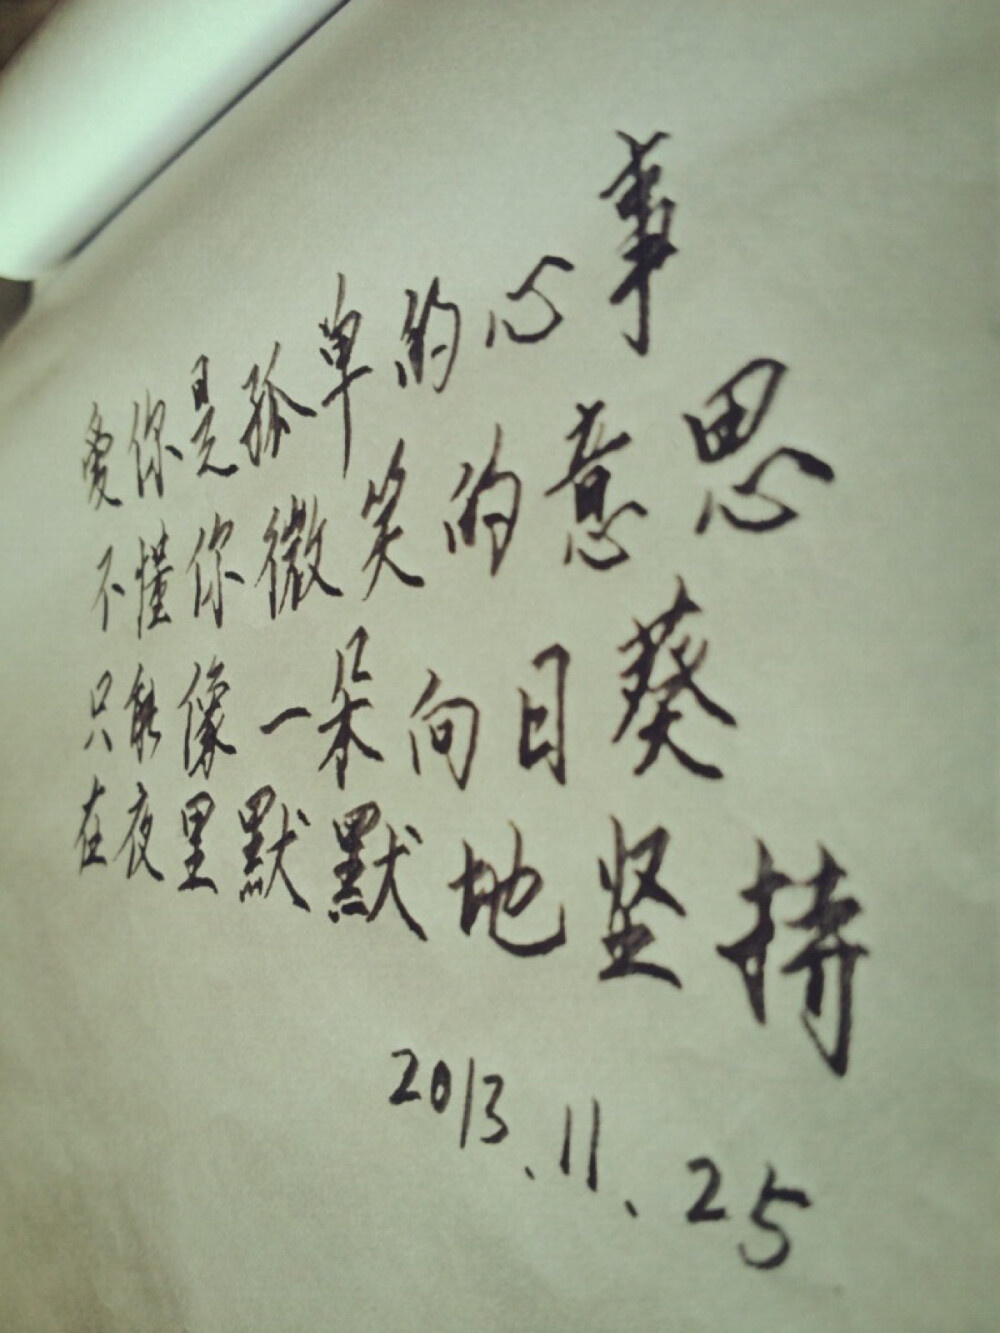 爱你是孤单的心事
不懂你微笑的意思
只能像一朵向日葵
在夜里默默地坚持
2013.11.25